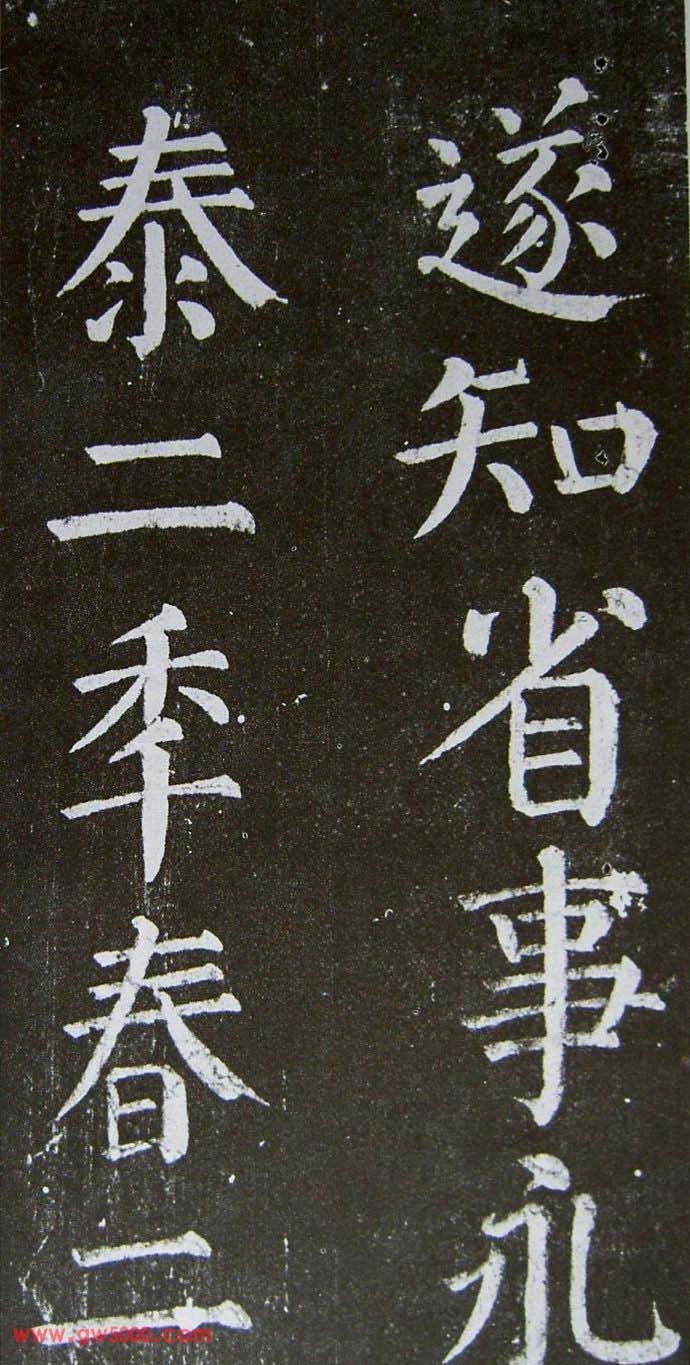 遂知省事永
泰二秊春二
www.gw5000.com